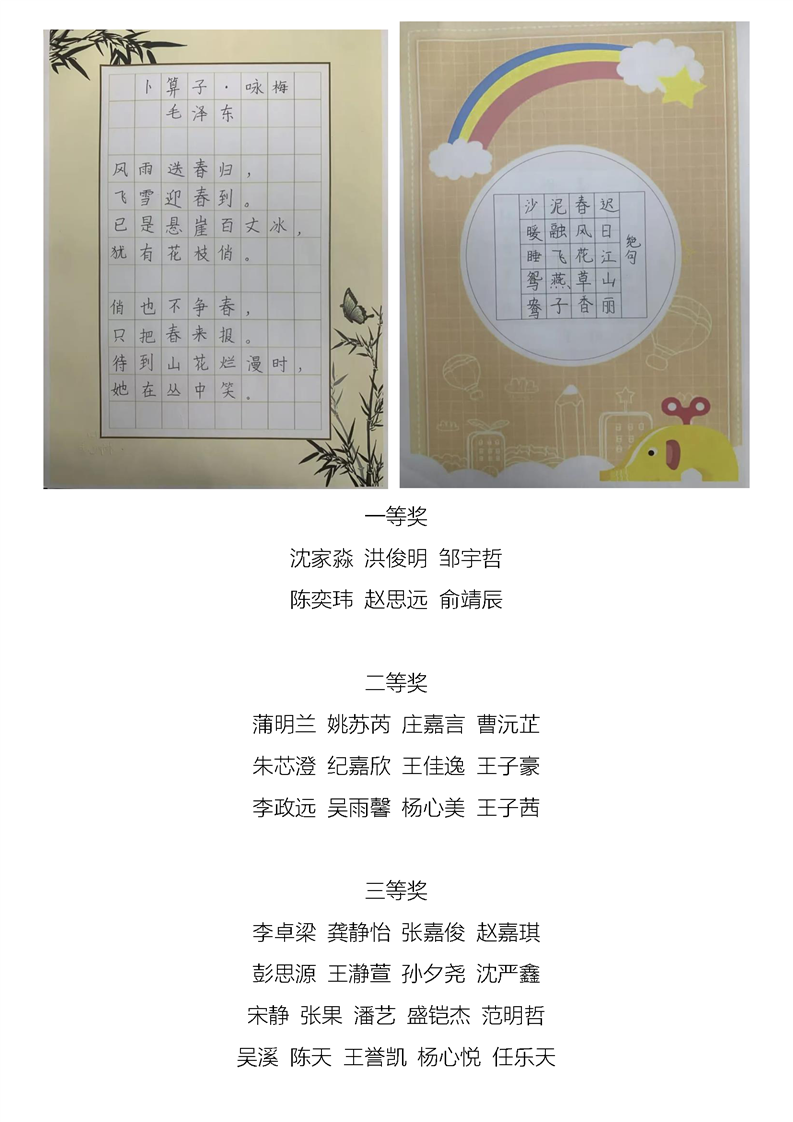 卜算子·咏梅
毛泽东
风雨迭春归，
飞雪迎春到。
已是悬崖百丈冰，
犹有花枝俏。
俏也不争春，
只把春来报。
待到山花烂漫时，
她在丛中笑。
绝句
迟日江山丽
春风花草香
泥融飞燕子
沙暖睡鸳鸯
一等奖
沈家淼 洪俊明 邹宇哲
陈奕玮 赵思远 俞靖辰
二等奖
蒲明兰 姚苏芮 庄嘉言 曹沅芷
朱芯澄 纪嘉欣 王佳逸 王子豪
李政远 吴雨馨 杨心美 王子茜
三等奖
李卓梁 龚静怡 张嘉俊 赵嘉琪
彭思源 王瀞萱 孙夕尧 沈严鑫
宋静 张果 潘艺 盛铠杰 范明哲
吴溪 陈天 王誉凯 杨心悦 任乐天